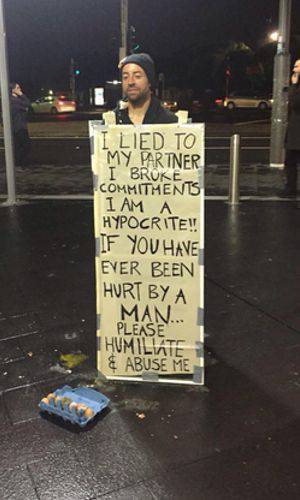 I LIED TO
MY PARTNER
I BROKE
COMMITMENTS
I AM A
HYPOCRITE!!
IF YOU HAVE
EVER BEEN
HURT BY A
MAN...
PLEASE
HUMILIATE
& ABUSE ME